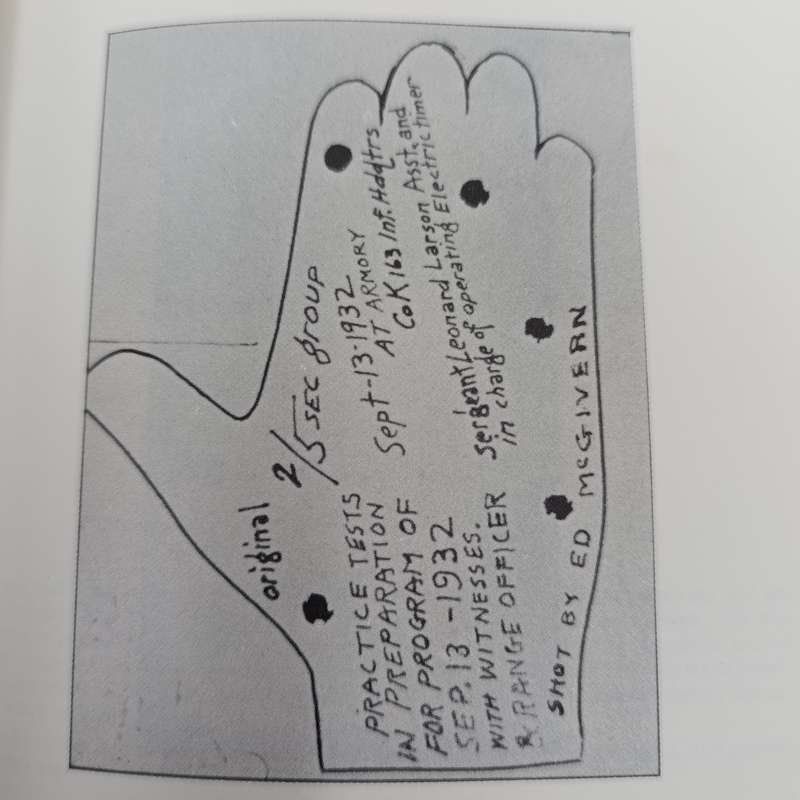 original 2/5 SEC group
PRACTICE TESTS
IN PREPARATION
FOR PROGRAM OF
SEP. 13 - 1932
WITH WITNESSES.
& RANGE OFFICER
Sept-13-1932
AT ARMORY
Co K 163 Inf. Hddtrs
Sergeant Leonard Larson Asst. and
in charge of operating Electric timer
SHOT BY ED McGIVERN